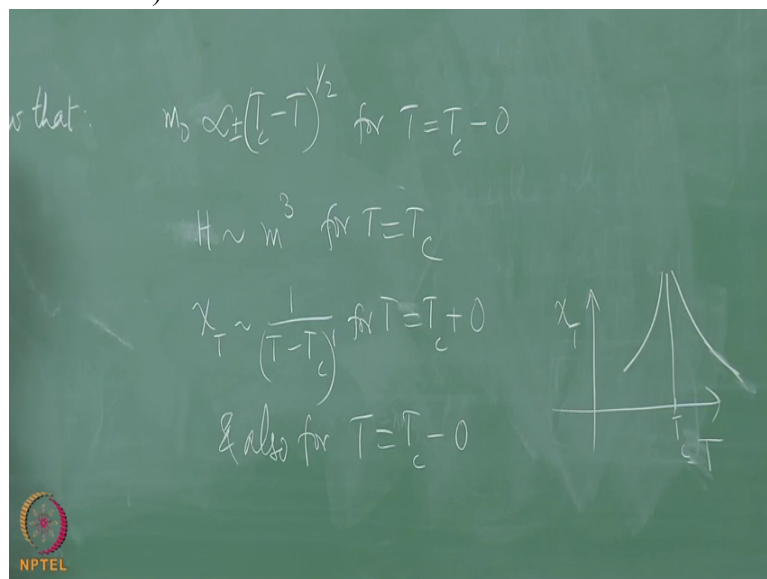 that: m₀ ∝ ±(T_c - T)^1/2 for T = T_c - 0
H ~ m³ for T = T_c
χ_T ~ 1/(T - T_c)^1 for T = T_c + 0
& also for T = T_c - 0
χ_T
T_c T
NPTEL